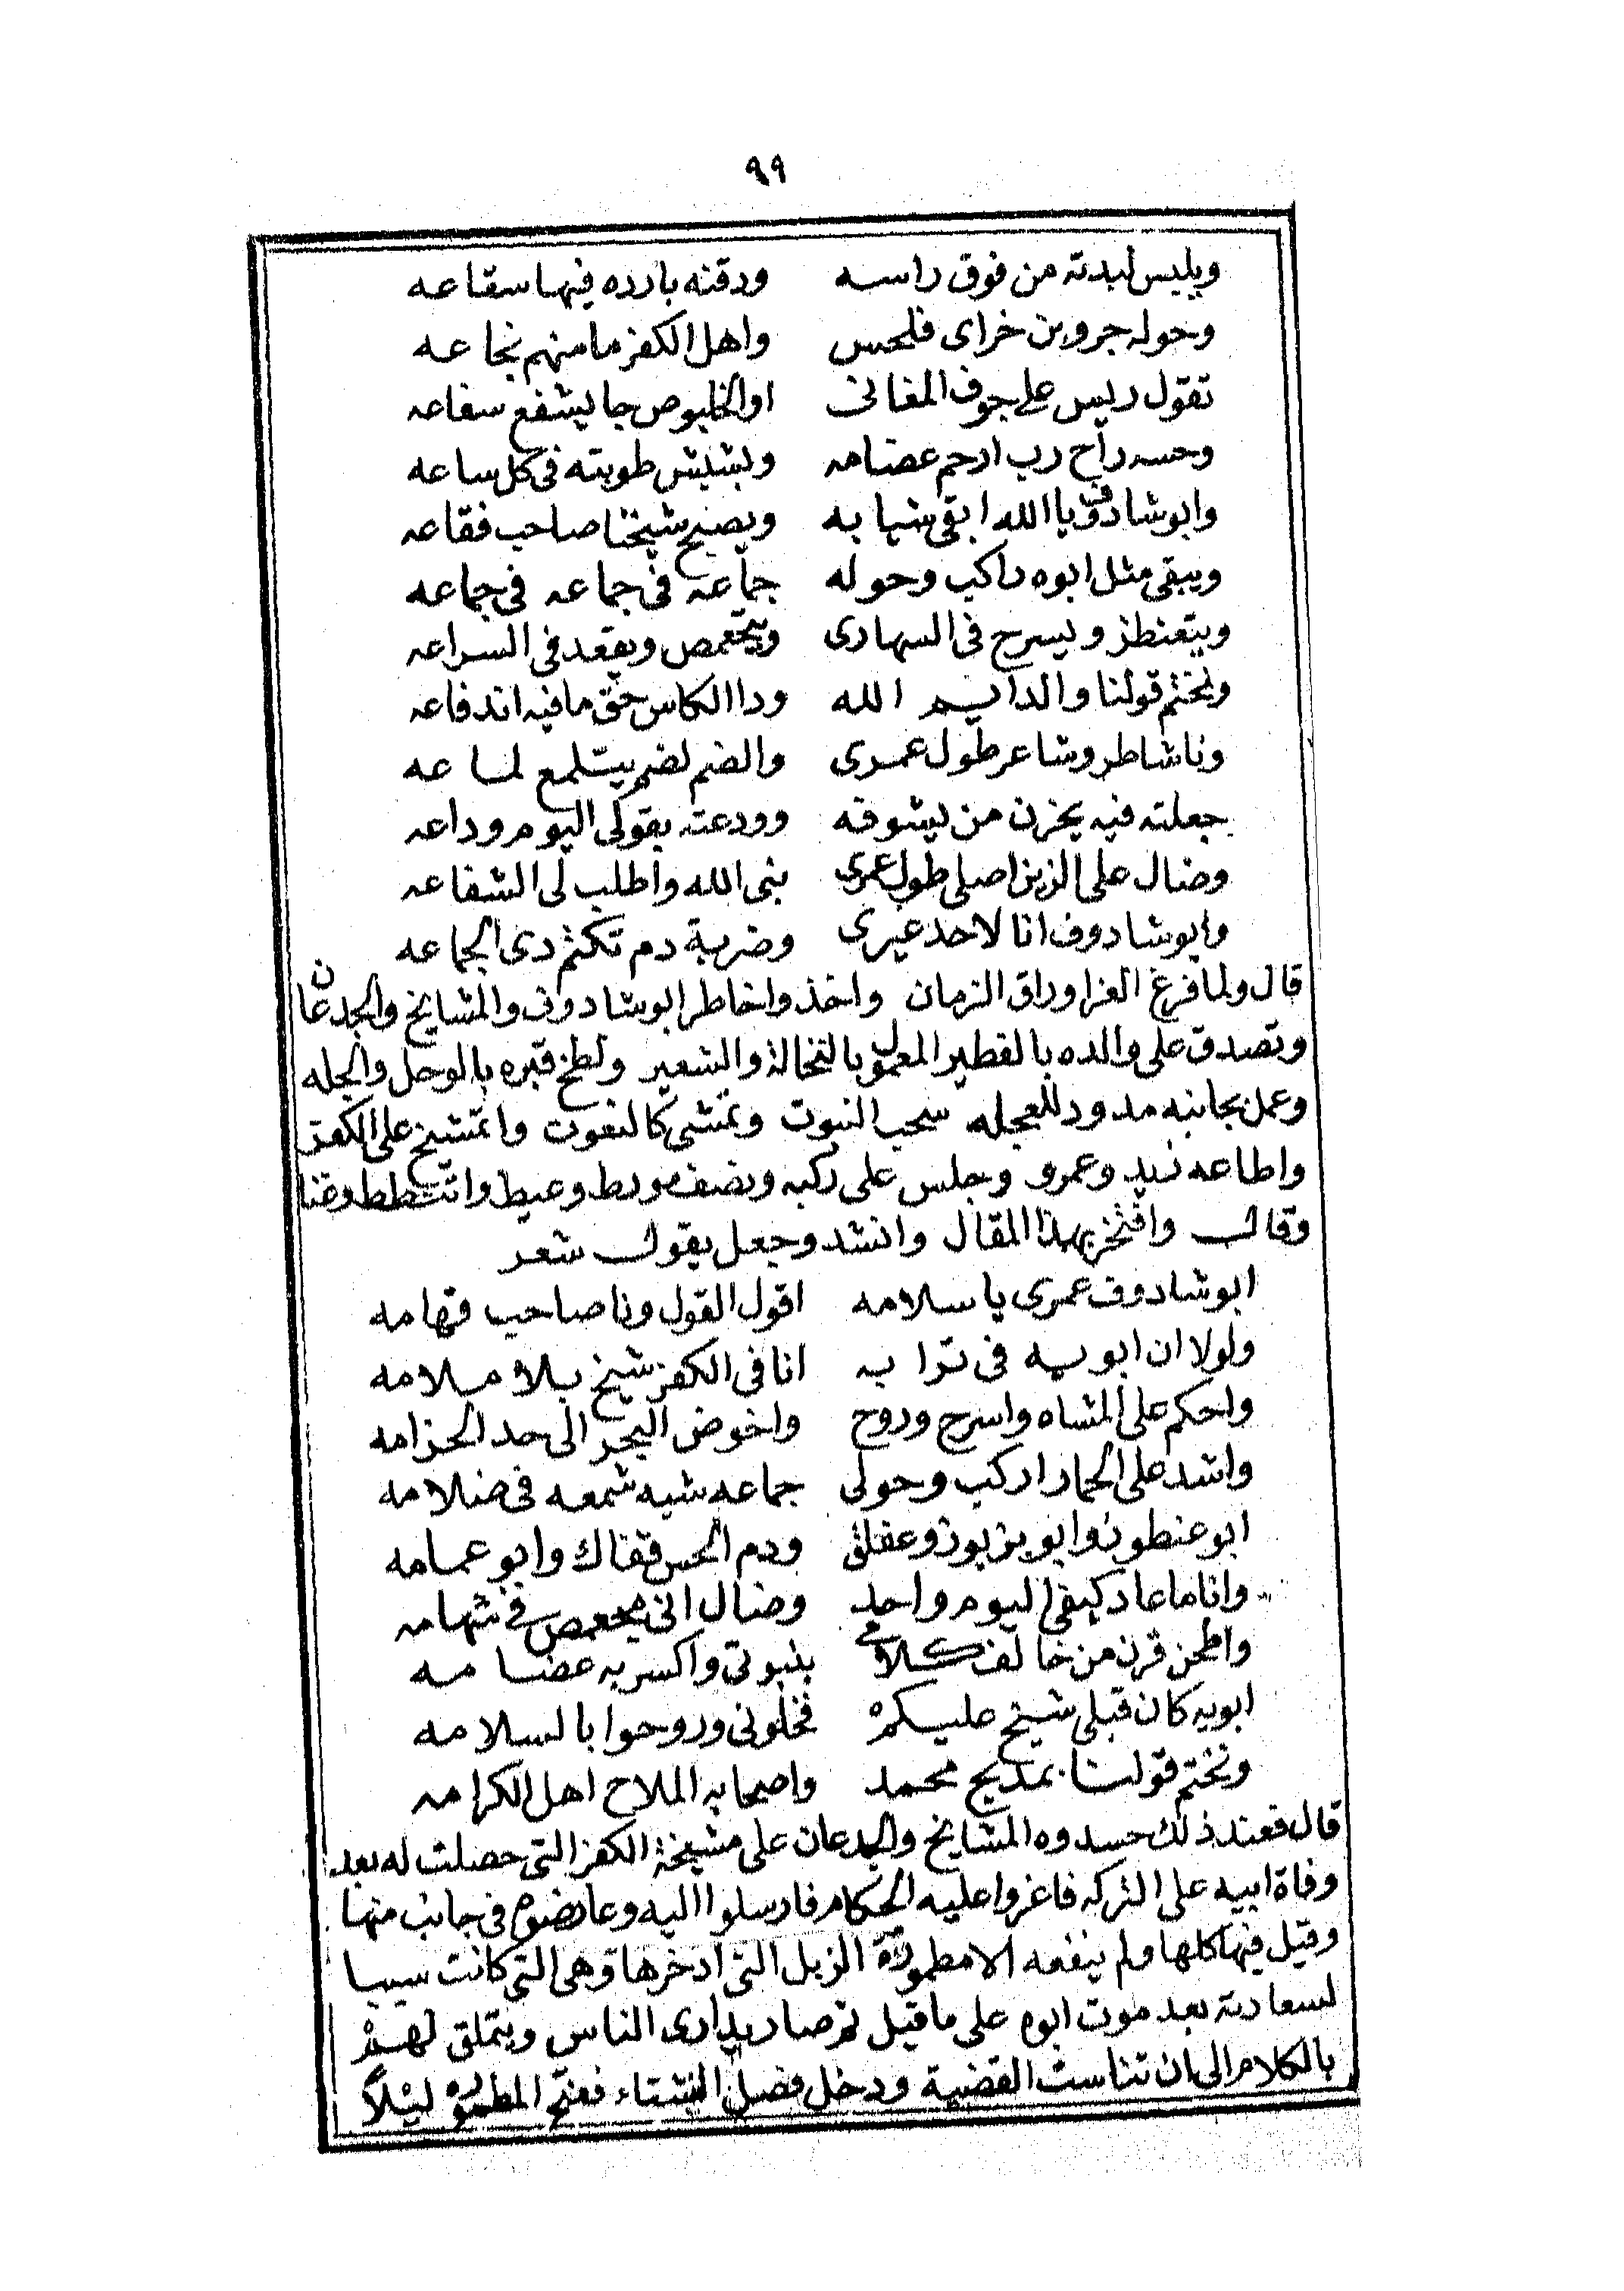 ٩٩
ويلبس لبدته من فوق راسه ودقنه بارده فيها سقاعه
وحوله جرو بن خراى فلحس واهل الكفر ما منهم نجاعه
تقول ريس على جوف المغانى او الخلبوص جا يشفع سفاعه
وحسه راح رب ارحم عضامه وبشبش طوبته فى كل ساعه
وابو شادوف يا الله ابقى شبابه ويصبح شيخنا صاحب فقاعه
ويبقى مثل ابوه راكب وحوله جماعه فى جماعه فى جماعه
ويتعنطز ويسرح فى السهارى ويتجعمص ويقعد فى السراعه
ونختم قولنا والدايم الله ودا الكاس حق ما فيه اندفاعه
ونا شاطر وشاعر طول عمرى والضم لضم بيتلمع لماعه
جعلته فيه يخزن من يشوفه وودعته بقولى اليوم وداعه
وضال على الزين اصلى طول عمرى نبى الله واطلب لى الشفاعه
وابو شادوف انا لا حد غيرى وضربة دم تكتم دى الجماعه
قال ولما فرغ العزا وراق الزمان واخذ واخاطر ابو شادوف والمشايخ والجدعان
وتصدق على والده بالفطير المعمول بالنخالة والشعير ولطخ قبره بالوحل والجله
وعمل بجانبه مدود للعجله سحب النبوت وتمشى كالنعوت واتمشيخ على الكفر
واطاعه زيد وعمرو وجلس على ركبه ونصف وربط وعيط واتشطط وغنا
وقال وافتخر بهذا المقال وانشد وجعل يقول شعر
ابو شادوف عمرى يا سلامه اقول القول ونا صاحب فهامه
ولولا ان ابويه فى ترابه انا فى الكفر شيخ بلا ملامه
واحكم على المشاه واسرح وروح واخوض البحر الى حد الحزامه
واشد على الحمار اركب وحولى جماعه شبه شمعه فى ضلامه
ابو عنطوز وابو بزبوز وعفلق ودم الحس قفاك وابو عمامه
وانا ما عاد كيفى اليوم واحد وضال انى مجعمص فى شهامه
واطحن قرن من خالف كلامى بنبوتى واكسر به عضامه
ابويه كان قبلى شيخ عليكم فخلونى وروحوا بالسلامه
ونختم قولنا بمديح محمد واصحابه الملاح اهل الكرامه
قال فعند ذلك حسدوه المشايخ والجدعان على مشيخة الكفر التى حصلت له بعد
وفاة ابيه على التركه فاغروا عليه الحكام فارسلوا اليه وعارضوه فى جانب منها
وقيل فيها كلها ولم ينفعه الا مطمورة الزبل التى ادخرها وهى التى كانت سببا
لسعادته بعد موت ابوه على ما قيل ثم صار يدارى الناس ويتملق لهم
بالكلام الى ان تناست القضية ودخل فصل الشتاء ففتح المطموره ليلاً